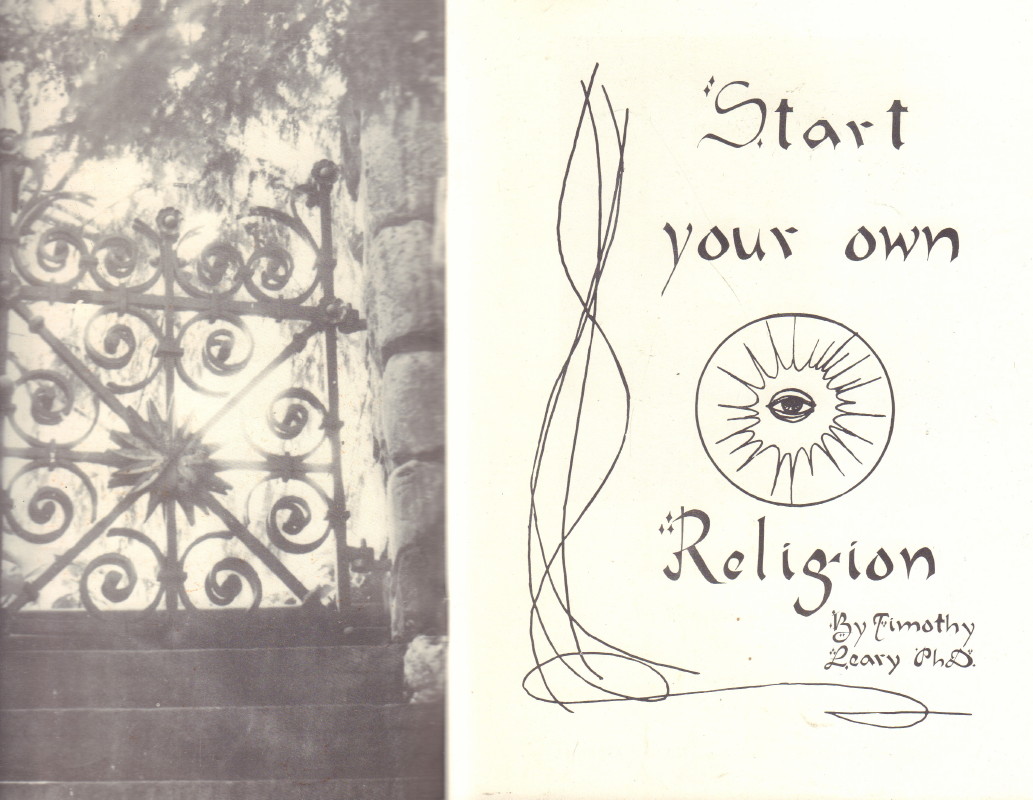 Start
your own
Religion
By Timothy
Leary PhD.